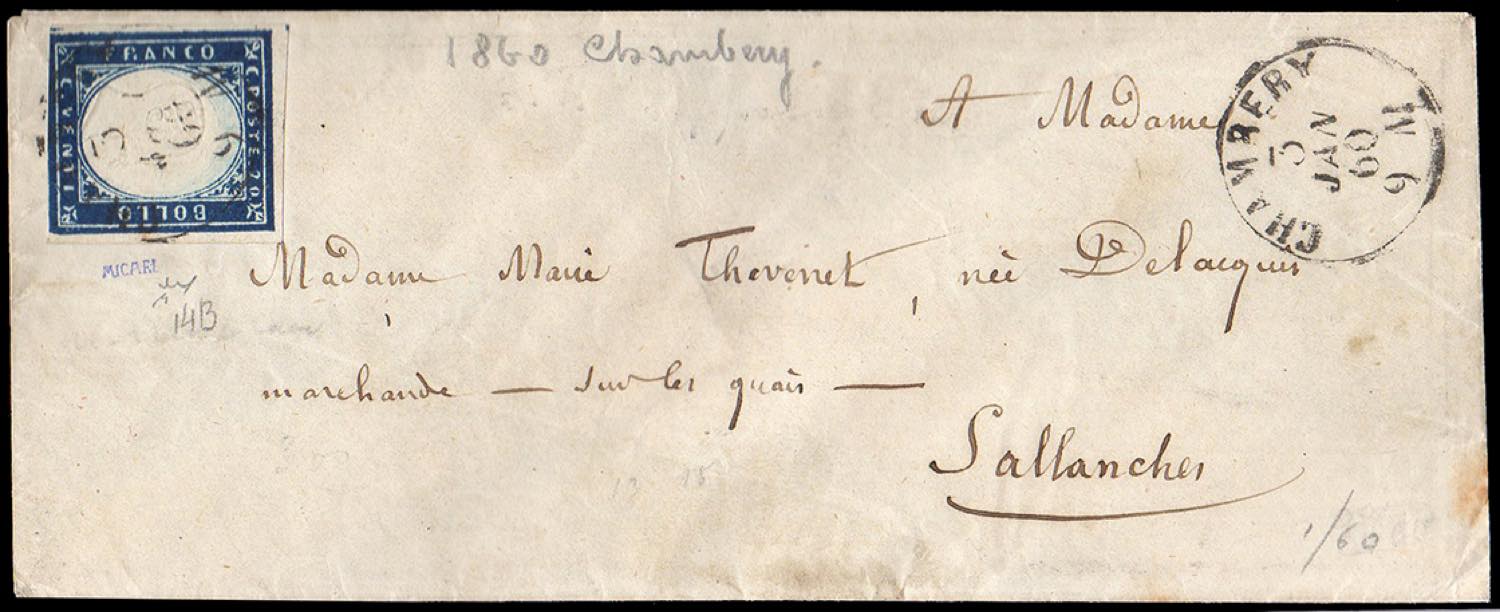 1860 Chambery.
FRANCO
C. POSTE. 20
BOLLO
CHAMBERY
3
JAN
60
6 M
A Madame
Madame Marie Thevenet, née Delacquis
marchande — sur les quais —
Sallanches
14B
1/60